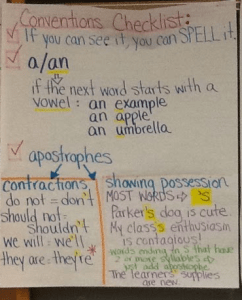 Conventions Checklist:
If you can see it, you can SPELL it.
a/an
if the next word starts with a
vowel: an example
an apple
an umbrella
apostrophes
contractions
do not = don't
should not =
shouldn't
we will = we'll
they are = they're*
showing possession
MOST WORDS → 's
Parker's dog is cute.
My class's enthusiasm
is contagious!
Words ending in S that have
2 or more syllables →
just add apostrophe
The learners' supplies
are new.